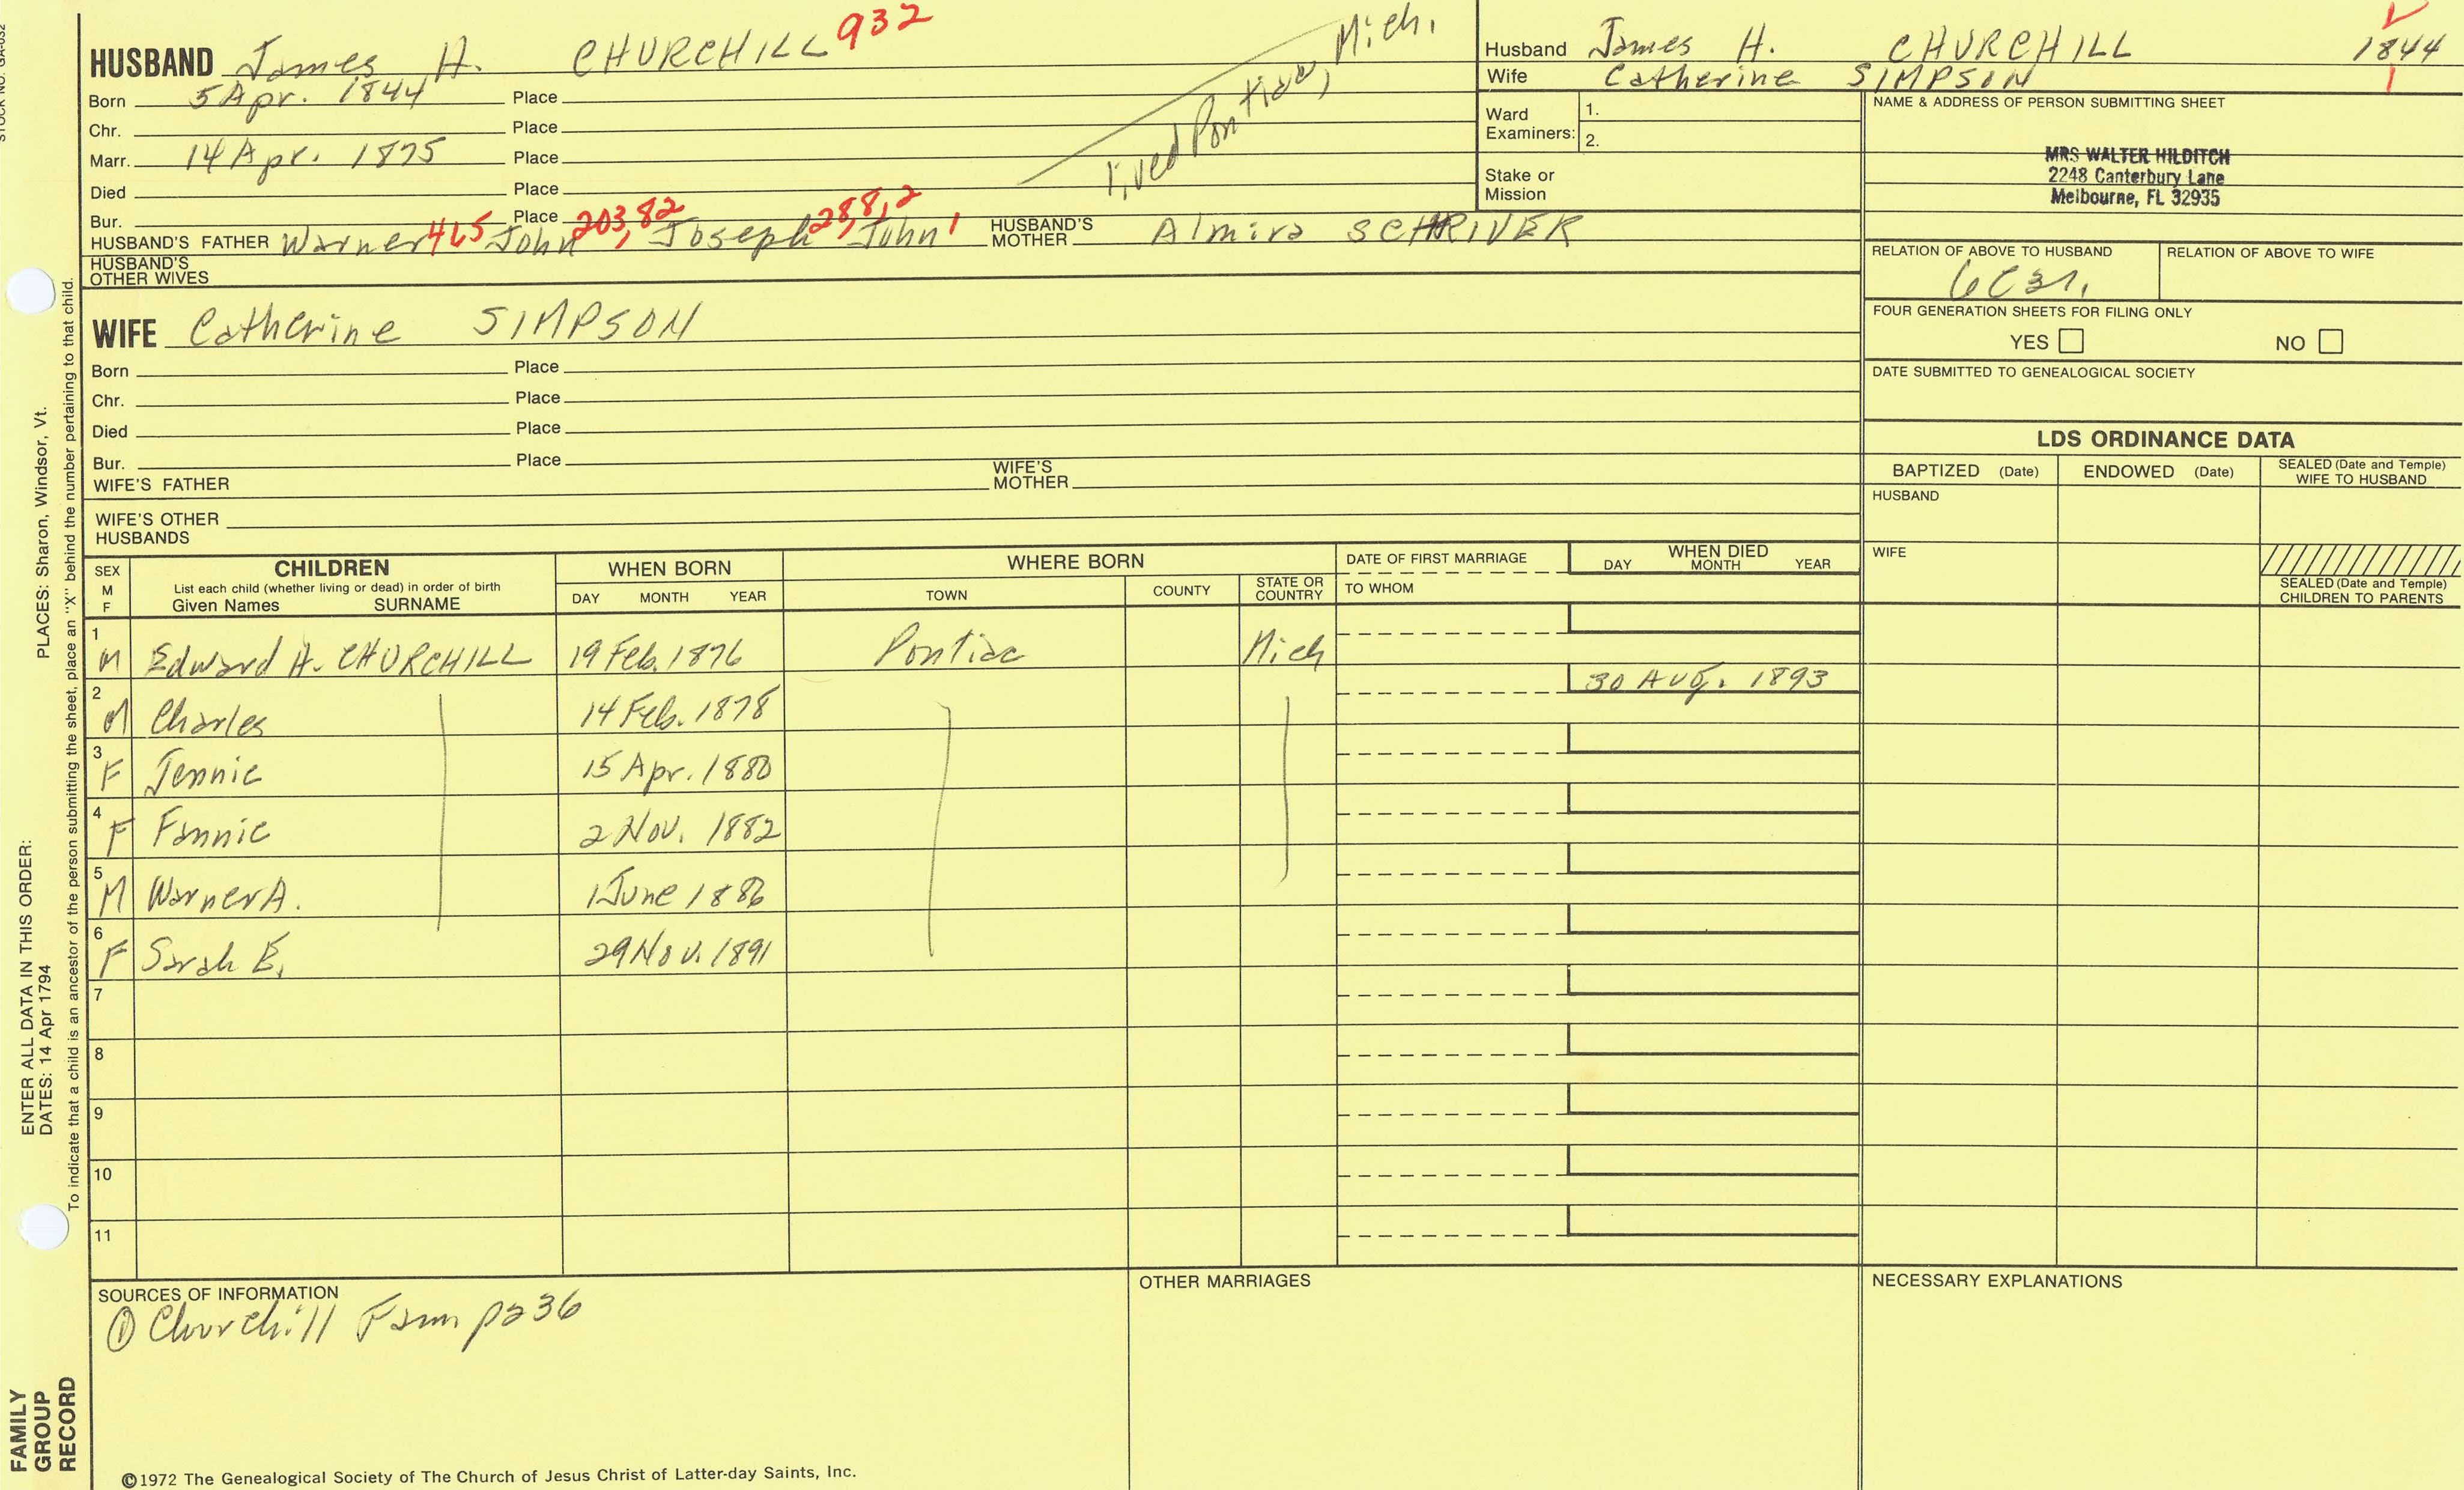 STOCK NO. GA-032
HUSBAND James H. CHURCHILL 932
Born 5 Apr. 1844 Place
Chr. Place
Marr. 14 Apr. 1875 Place
Died Place
Bur. Place
lived Pontiac, Mich.
HUSBAND'S FATHER Warner 465 John 203, 82 Joseph 28, 8, 2 John 1 HUSBAND'S MOTHER Almira SCHRIVER
HUSBAND'S OTHER WIVES
WIFE Catherine SIMPSON
Born Place
Chr. Place
Died Place
Bur. Place
WIFE'S FATHER WIFE'S MOTHER
WIFE'S OTHER HUSBANDS
Husband James H. CHURCHILL 1844
Wife Catherine SIMPSON
Ward Examiners: 1.
2.
Stake or Mission
NAME & ADDRESS OF PERSON SUBMITTING SHEET
MRS WALTER HILDITCH
2248 Canterbury Lane
Melbourne, FL 32935
RELATION OF ABOVE TO HUSBAND RELATION OF ABOVE TO WIFE
FOUR GENERATION SHEETS FOR FILING ONLY
YES NO
DATE SUBMITTED TO GENEALOGICAL SOCIETY
LDS ORDINANCE DATA
BAPTIZED (Date) ENDOWED (Date) SEALED (Date and Temple) WIFE TO HUSBAND
HUSBAND
WIFE
SEALED (Date and Temple) CHILDREN TO PARENTS
SEX M F CHILDREN WHEN BORN WHERE BORN DATE OF FIRST MARRIAGE WHEN DIED
List each child (whether living or dead) in order of birth
Given Names SURNAME DAY MONTH YEAR TOWN COUNTY STATE OR COUNTRY TO WHOM DAY MONTH YEAR
1 M Edward H. CHURCHILL 19 Feb. 1876 Pontiac Mich
2 M Charles 14 Feb. 1878 30 Aug. 1893
3 F Jennie 15 Apr. 1880
4 F Fannie 2 Nov. 1882
5 M Warner A. 1 June 1886
6 F Sarah E. 29 Nov. 1891
7
8
9
10
11
SOURCES OF INFORMATION OTHER MARRIAGES NECESSARY EXPLANATIONS
① Churchill Fam p236
©1972 The Genealogical Society of The Church of Jesus Christ of Latter-day Saints, Inc.
ENTER ALL DATA IN THIS ORDER:
DATES: 14 Apr 1794 PLACES: Sharon, Windsor, Vt.
To indicate that a child is an ancestor of the person submitting the sheet, place an "X" behind the number pertaining to that child.
FAMILY
GROUP
RECORD